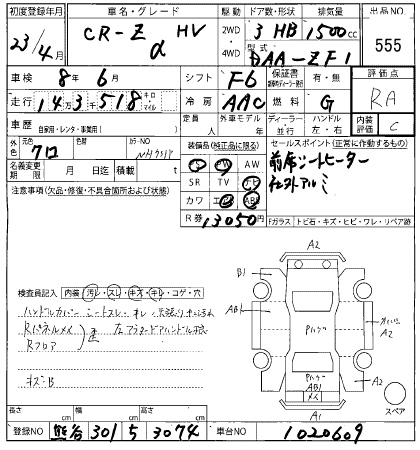 初度登録年月 車名・グレード 駆動 ドア数・形状 排気量 出品NO
23/4月 CR-Z α HV 2WD・4WD 3 HB 1500cc 555
型式 DAA-ZF1
車検 8年6月 シフト F6 保証書 評価点 RA
走行 14万3千518 キロ マイル 冷房 AAC 燃料 G 内装評価 C
車歴 自家用・レンタ・事業用( ) 定員 人 外車モデル 年 ディーラー・並行 ハンドル 左・右
外色 元色 色替 カラーNO
クロ
装備品(純正品に限る) セールスポイント(正常に動作するもの)
PS PW AW
SR TV ナビ
カワ エアB ABS
R券 13050円
前席シートヒーター
社外アルミ
名義変更期限 月 日迄 積載 t
注意事項(欠品・修復・不具合箇所および状態)
Fガラス トビ石・キズ・ヒビ・ワレ・リペア跡
検査員記入 内装 汚レ・スレ・キズ・キレ・コゲ・穴
Rパネルメメ
Rフロア
A2
B1
AB1
Pハゲ
A2
Pハゲ
AB1
メメ
A2
A1
スペア
長さ cm 幅 cm 高さ cm
登録NO 熊谷 301 5 3074 車台NO 1020609